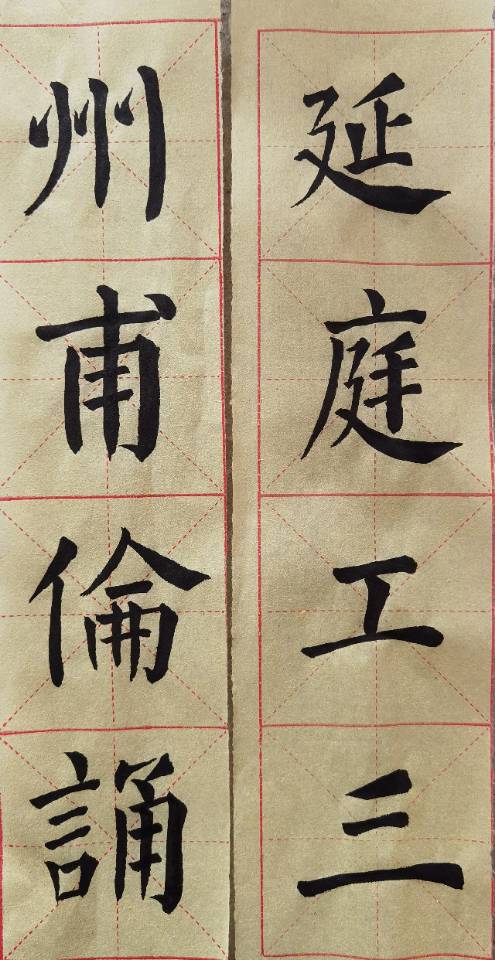 延庭工三
州甫倫誦